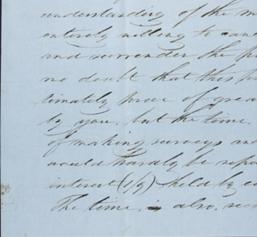 understanding of the m
entirely willing to canc
and surrender the p
no doubt that this p
timately prove of grea
to you, but the time,
of making surveys an
would hardly be repa
interest (1/9) held by e
The time, is also, rec